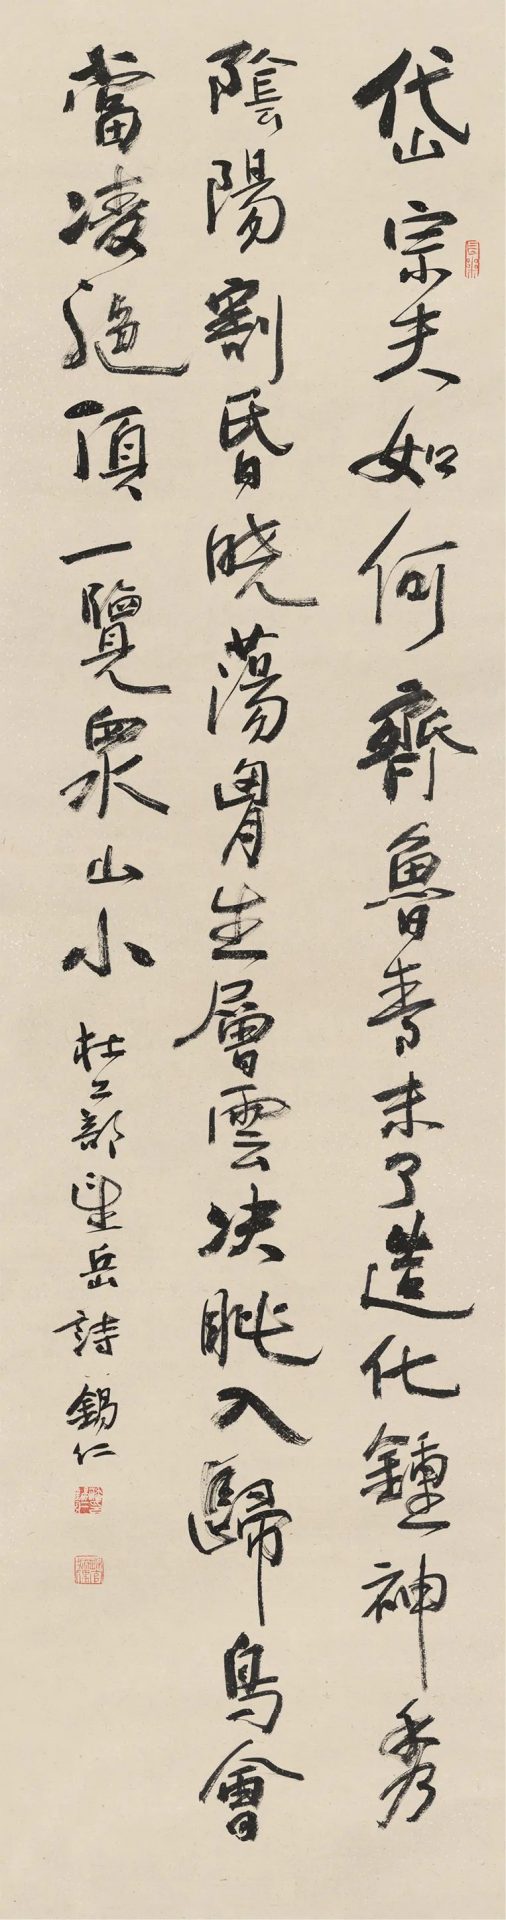 岱宗夫如何齊魯青未了造化鍾神秀
陰陽割昏曉蕩胷生層雲决眦入歸鳥會
當凌絶頂一覽衆山小 杜工部望岳詩 錫仁